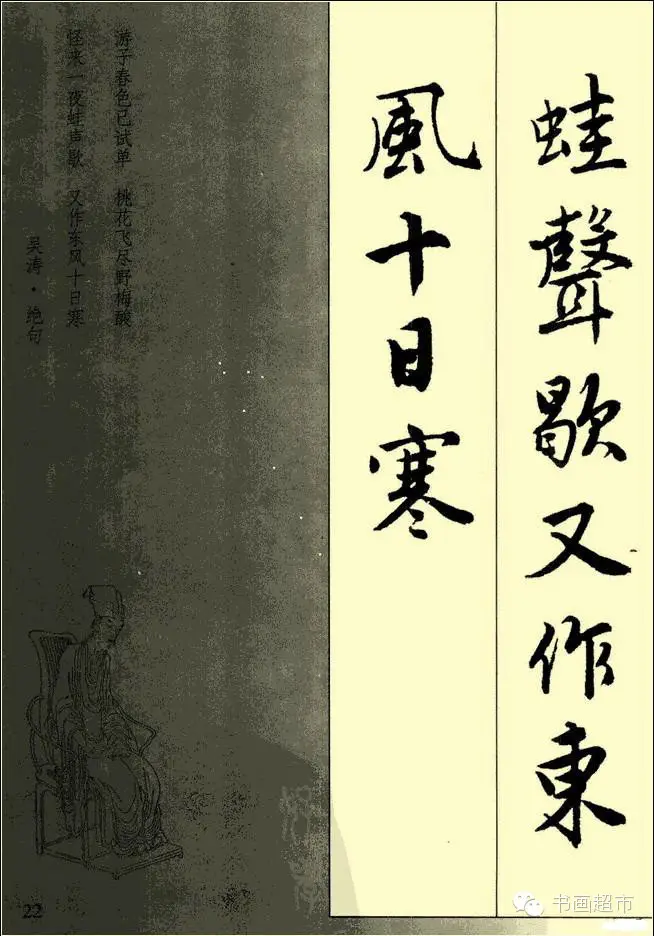 蛙聲歇又作東
風十日寒
游子春色已试单 桃花飞尽野梅酸
怪来一夜蛙声歇 又作东风十日寒
吴涛·绝句
22
书画超市